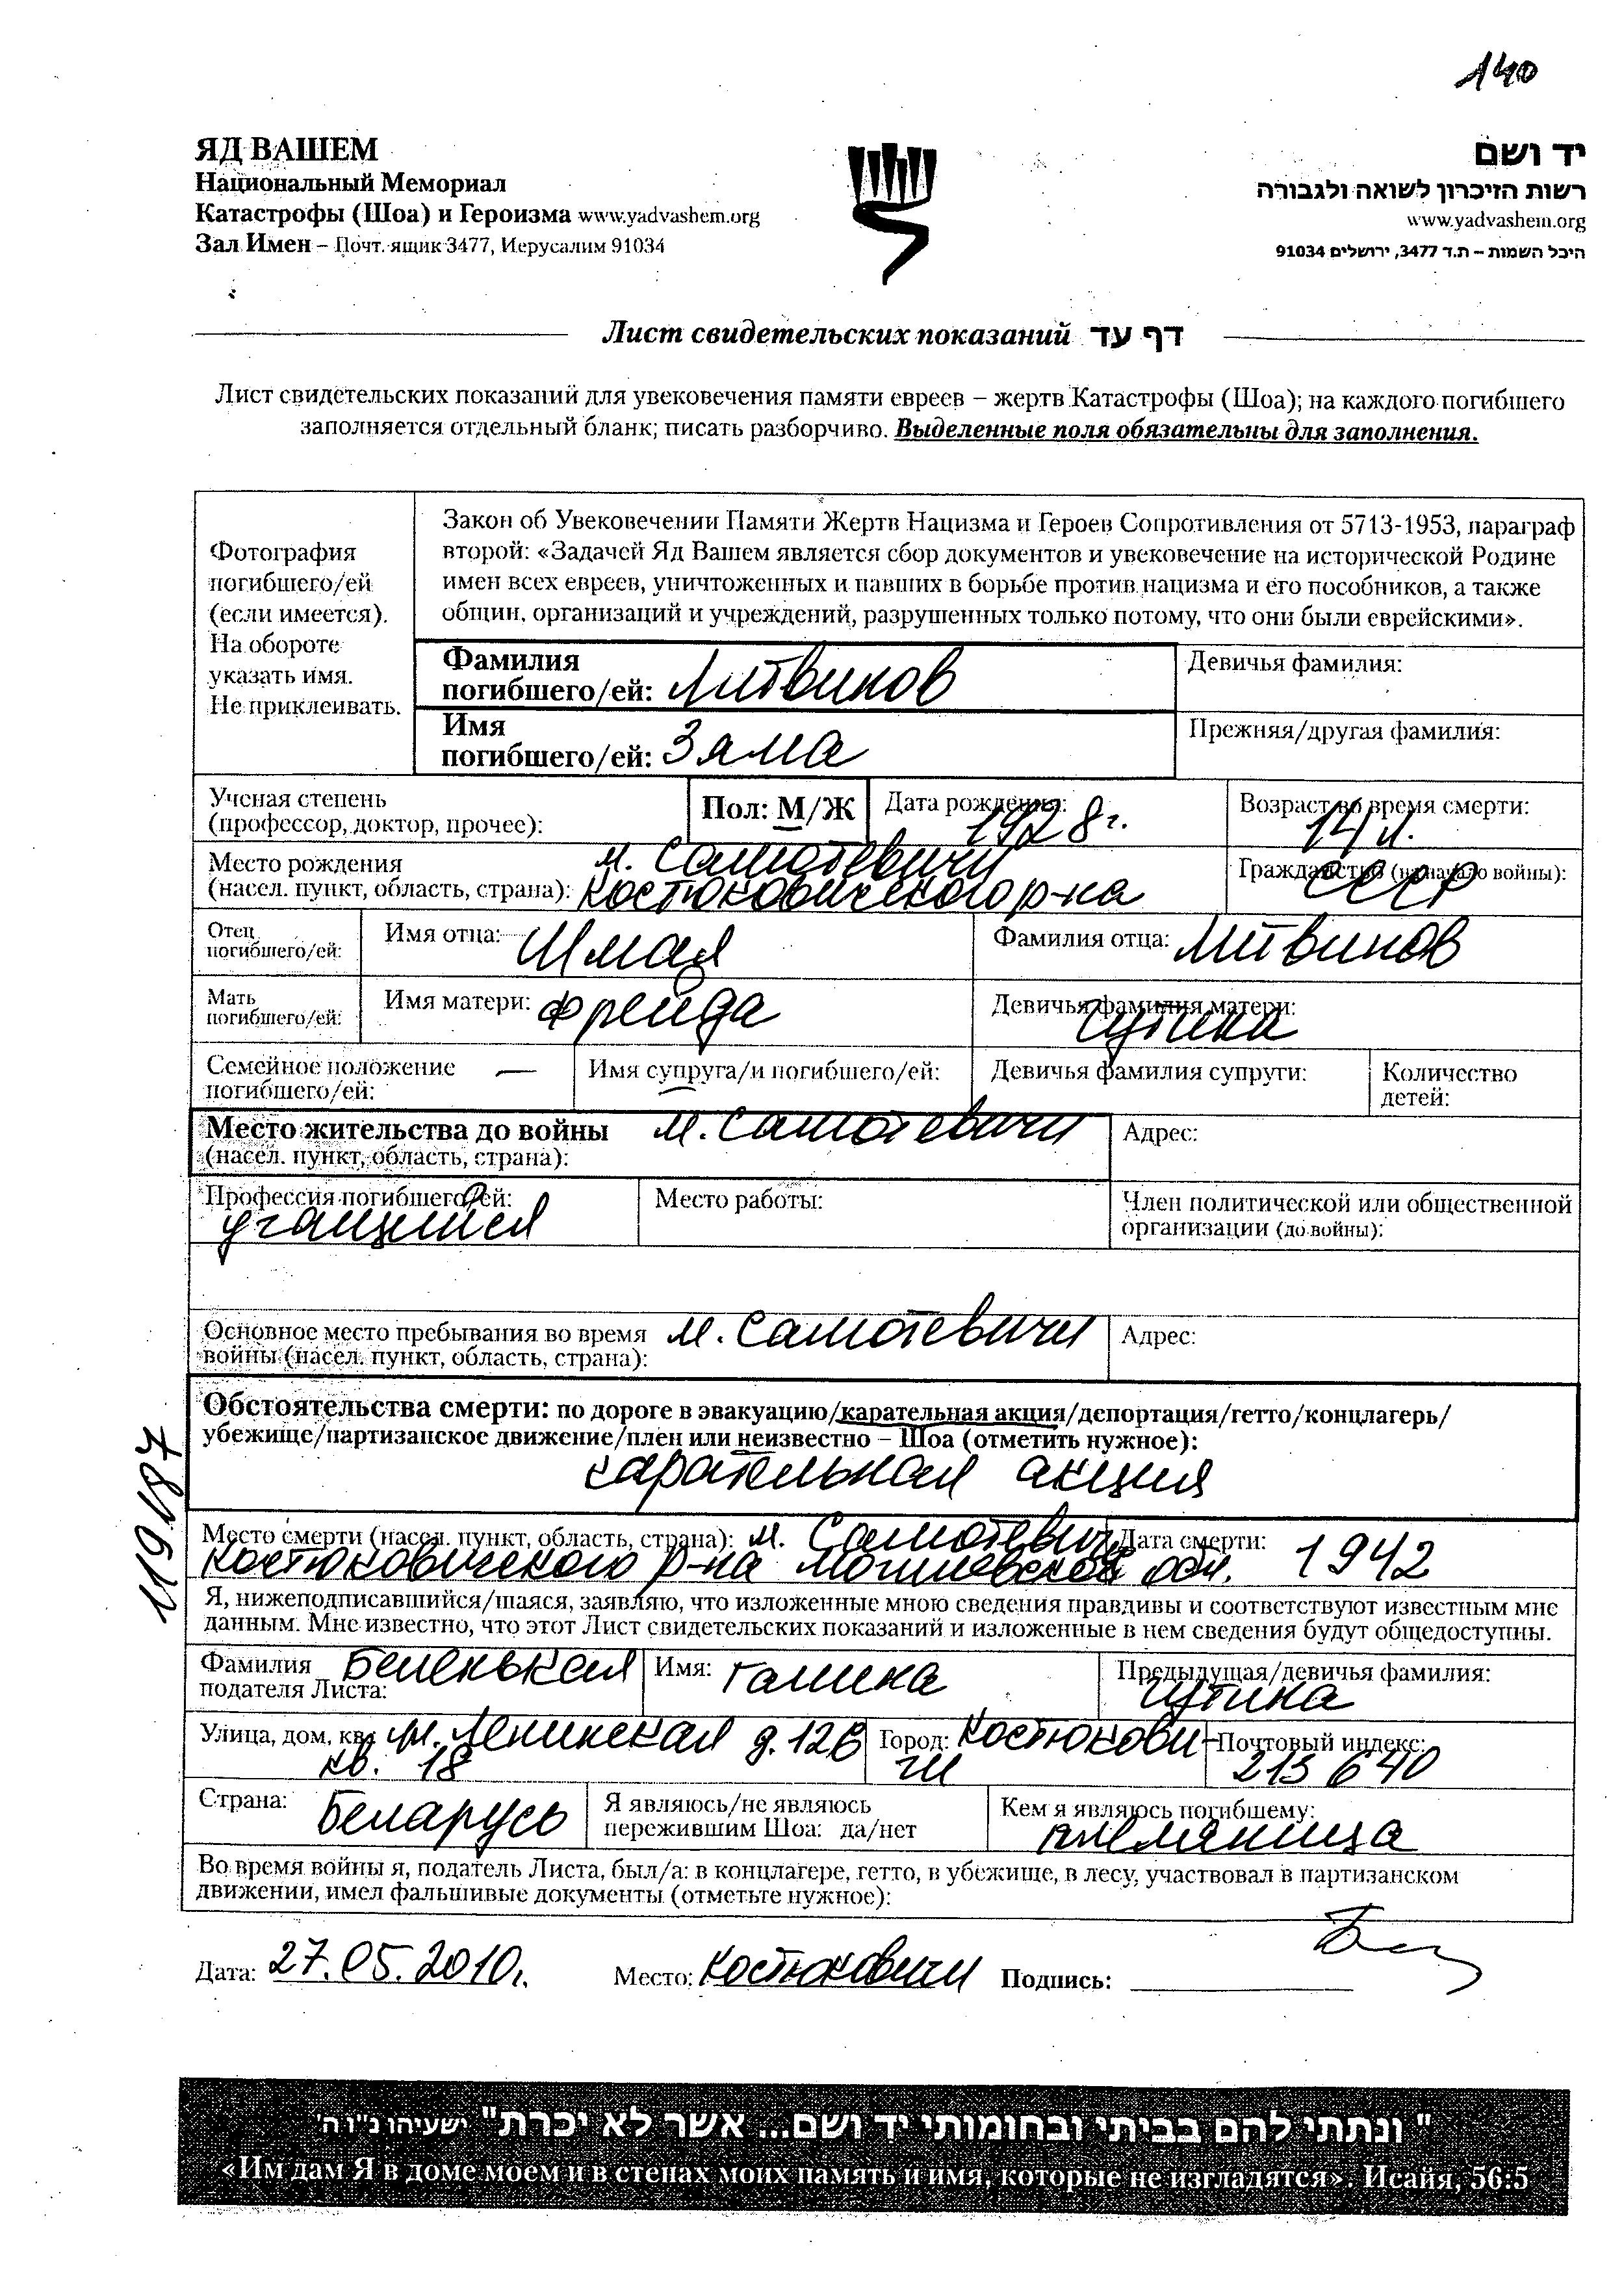 140
ЯД ВАШЕМ
Национальный Мемориал
Катастрофы (Шоа) и Героизма www.yadvashem.org
Зал Имен – Почт. ящик 3477, Иерусалим 91034
יד ושם
רשות הזיכרון לשואה ולגבורה
www.yadvashem.org
היכל השמות – ת.ד 3477, ירושלים 91034
Лист свидетельских показаний דף עד
Лист свидетельских показаний для увековечения памяти евреев – жертв Катастрофы (Шоа); на каждого погибшего
заполняется отдельный бланк; писать разборчиво. Выделенные поля обязательны для заполнения.
Фотография
погибшего/ей
(если имеется).
На обороте
указать имя.
Не приклеивать.
Закон об Увековечении Памяти Жертв Нацизма и Героев Сопротивления от 5713-1953, параграф
второй: «Задачей Яд Вашем является сбор документов и увековечение на исторической Родине
имен всех евреев, уничтоженных и павших в борьбе против нацизма и его пособников, а также
общин, организаций и учреждений, разрушенных только потому, что они были еврейскими».
Фамилия
погибшего/ей: Литвинов
Девичья фамилия:
Имя
погибшего/ей: Зяма
Прежняя/другая фамилия:
Ученая степень
(профессор, доктор, прочее):
Пол: М/Ж
Дата рождения: 1928г.
Возраст во время смерти: 14 л.
Место рождения м. Самотевичи
(насел. пункт, область, страна): Костюковичского р-на
Гражданство (на начало войны): СССР
Отец
погибшего/ей:
Имя отца: Шмая
Фамилия отца: Литвинов
Мать
погибшего/ей:
Имя матери: Фрейда
Девичья фамилия матери: Шутина
Семейное положение —
погибшего/ей:
Имя супруга/и погибшего/ей:
Девичья фамилия супруги:
Количество
детей:
Место жительства до войны м. Самотевичи
(насел. пункт, область, страна):
Адрес:
Профессия погибшего/ей:
учащийся
Место работы:
Член политической или общественной
организации (до войны):
Основное место пребывания во время м. Самотевичи
войны (насел. пункт, область, страна):
Адрес:
Обстоятельства смерти: по дороге в эвакуацию/карательная акция/депортация/гетто/концлагерь/
убежище/партизанское движение/плен или неизвестно – Шоа (отметить нужное):
карательная акция
Место смерти (насел. пункт, область, страна): м. Самотевичи
Костюковичского р-на Могилевской обл.
Дата смерти: 1942
Я, нижеподписавшийся/шаяся, заявляю, что изложенные мною сведения правдивы и соответствуют известным мне
данным. Мне известно, что этот Лист свидетельских показаний и изложенные в нем сведения будут общедоступны.
Фамилия Беленькая
подателя Листа:
Имя: Галина
Предыдущая/девичья фамилия:
Шутина
Улица, дом, кв.: ул. Ленинская д. 126
кв. 18
Город: Костюкови-
чи
Почтовый индекс:
213640
Страна: Беларусь
Я являюсь/не являюсь
пережившим Шоа: да/нет
Кем я являюсь погибшему:
племянница
Во время войны я, податель Листа, был/а: в концлагере, гетто, в убежище, в лесу, участвовал в партизанском
движении, имел фальшивые документы (отметьте нужное):
Дата: 27.05.2010г. Место: Костюковичи Подпись:
11987
" ונתתי להם בביתי ובחומותי יד ושם... אשר לא יכרת" ישעיהו נ"ו ה'
«Им дам Я в доме моем и в стенах моих память и имя, которые не изгладятся». Исайя, 56:5